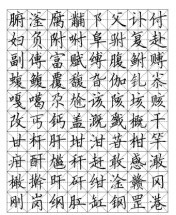 腑滏腐黼卩父讣付
妇负附咐阜驸复赴
副傅富赋缚腹鲋赙
蝮鳆覆馥旮伽钆尜
嘎噶尕尬该陔垓赅
改丐钙盖溉戤概干
甘杆肝坩泔苷柑竿
疳酐尴秆赶敢感澉
橄擀旰矸绀淦赣冈
刚岗纲肛缸钢罡港